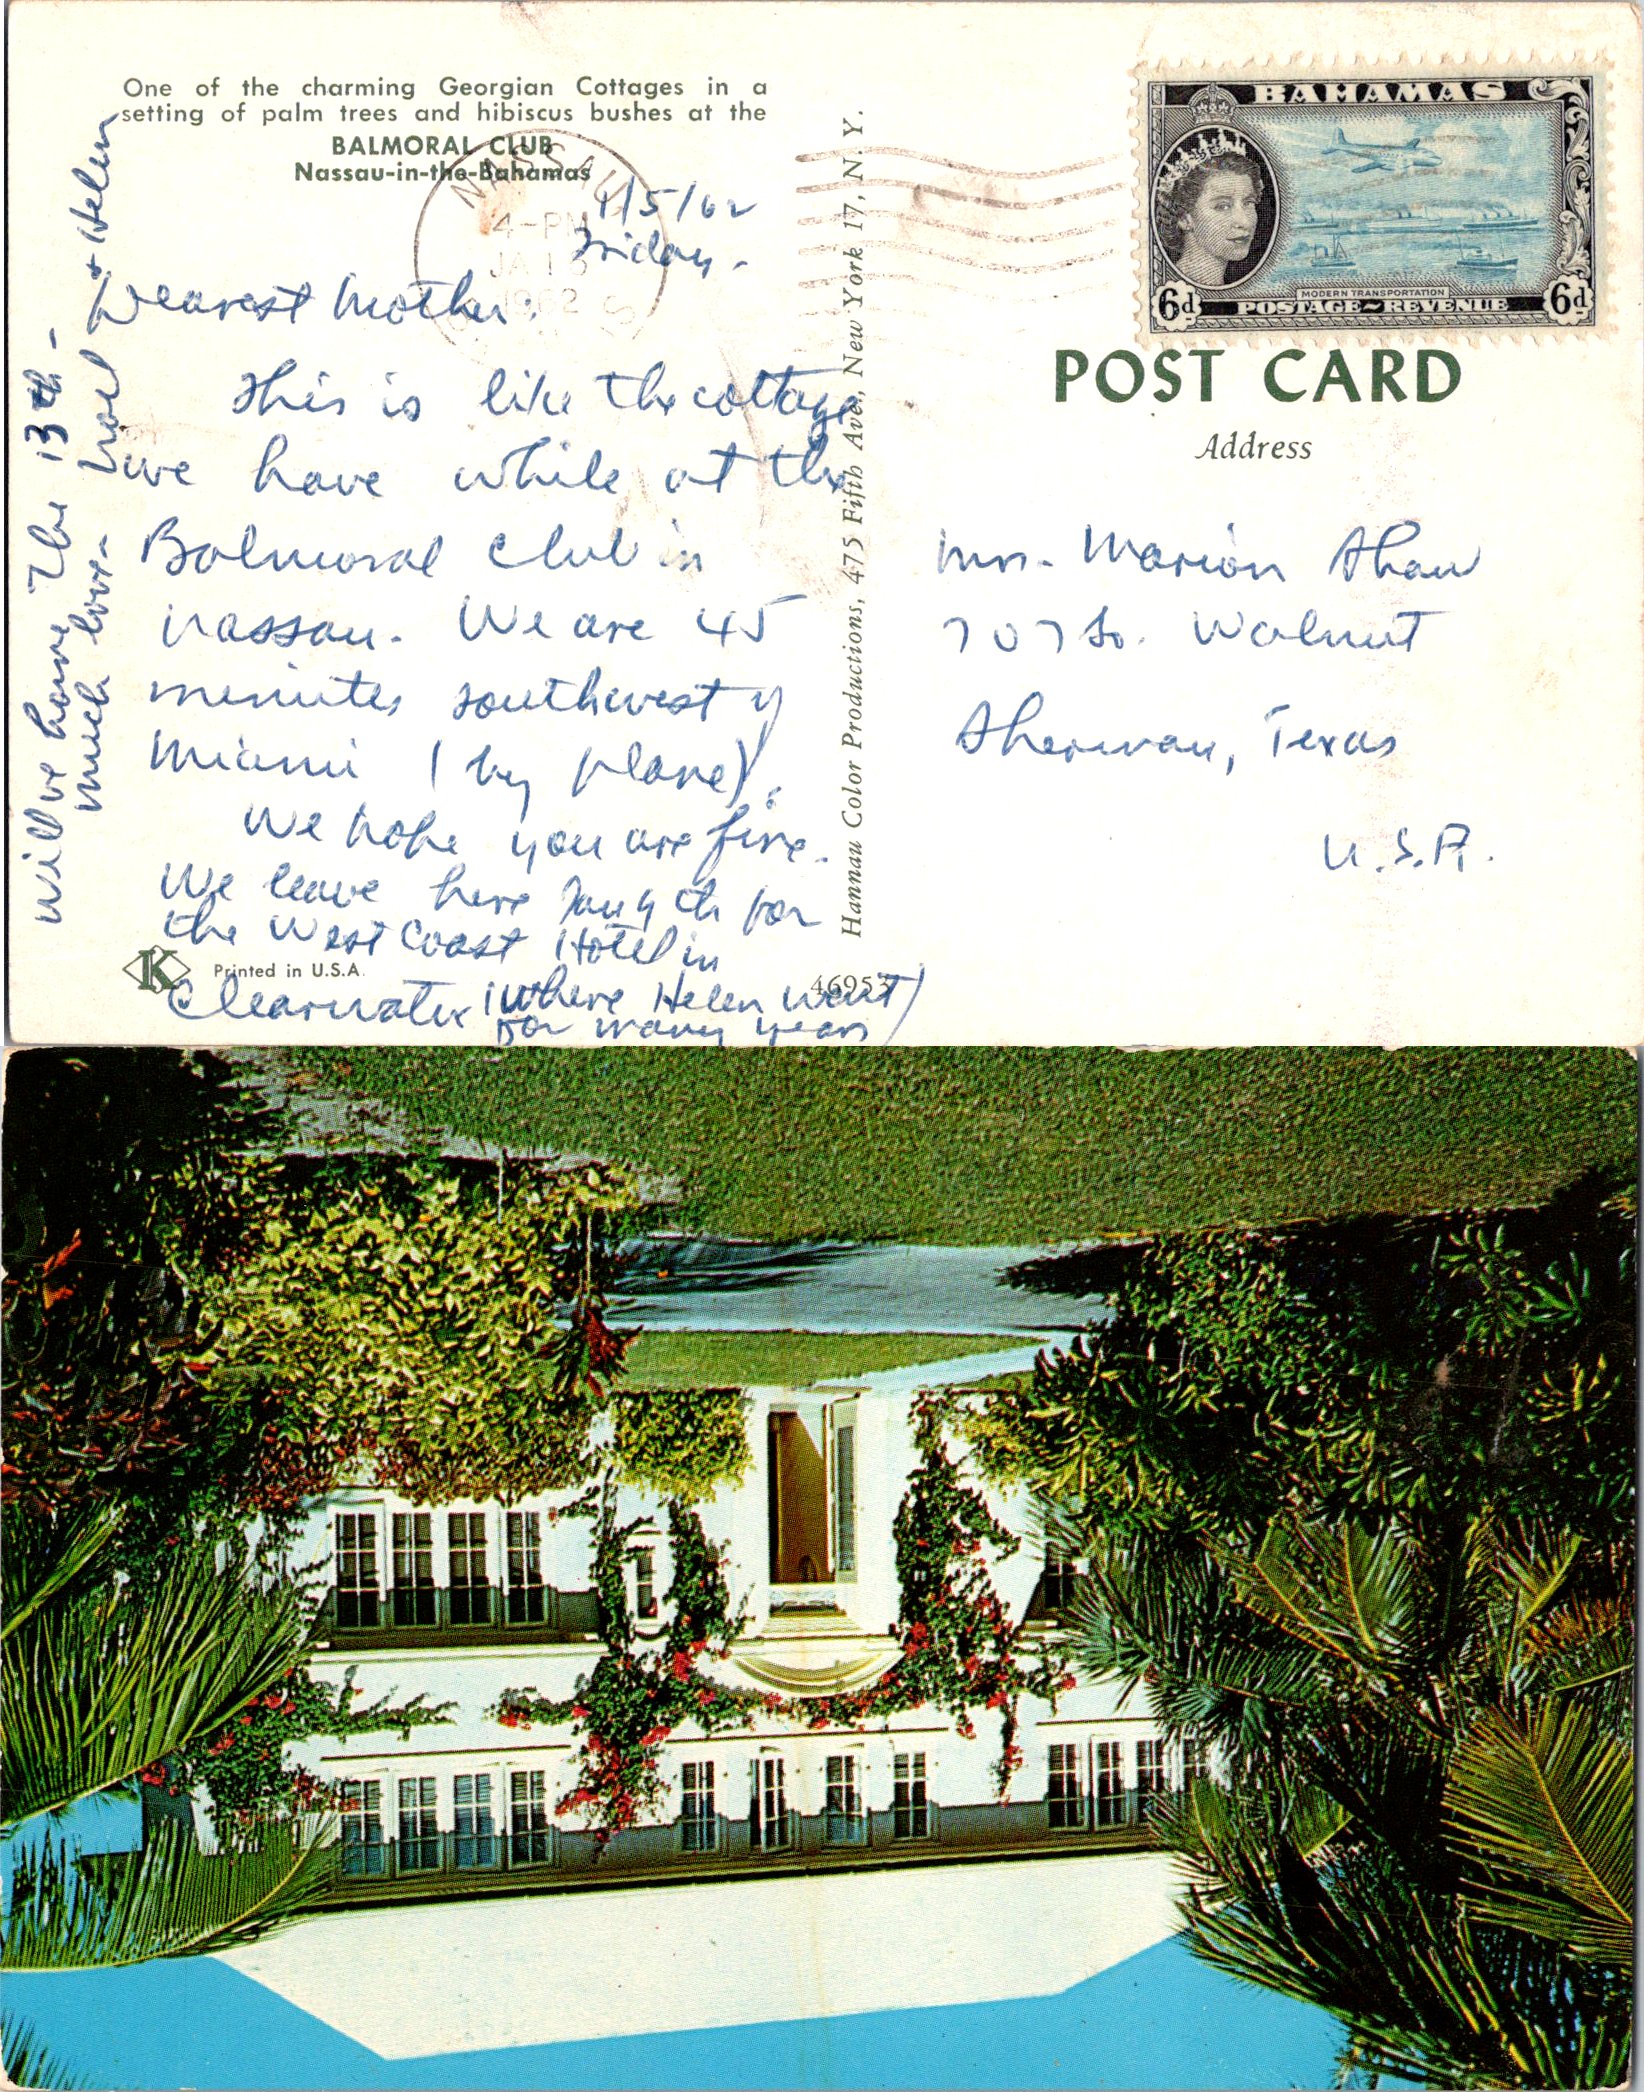 One of the charming Georgian Cottages in a
setting of palm trees and hibiscus bushes at the
BALMORAL CLUB
Nassau-in-the-Bahamas
NASSAU
4-PM
1962
1/5/62
Friday.
Dearest Mother:
This is like the cottage
we have while at the
Balmoral Club in
Nassau. We are 45
minutes southwest of
Miami (by plane).
We hope you are fine.
We leave here Jan 9th for
the West Coast Hotel in
Clearwater (where Helen went
for many years)
Will be home the 13th -
much love - Noel + Helen
K
Printed in U.S.A.
46953
Hannau Color Productions, 475 Fifth Ave., New York 17, N. Y.
BAHAMAS
MODERN TRANSPORTATION
6d POSTAGE~REVENUE 6d
POST CARD
Address
Mrs. Marion Shaw
707 So. Walnut
Sherman, Texas
U.S.A.